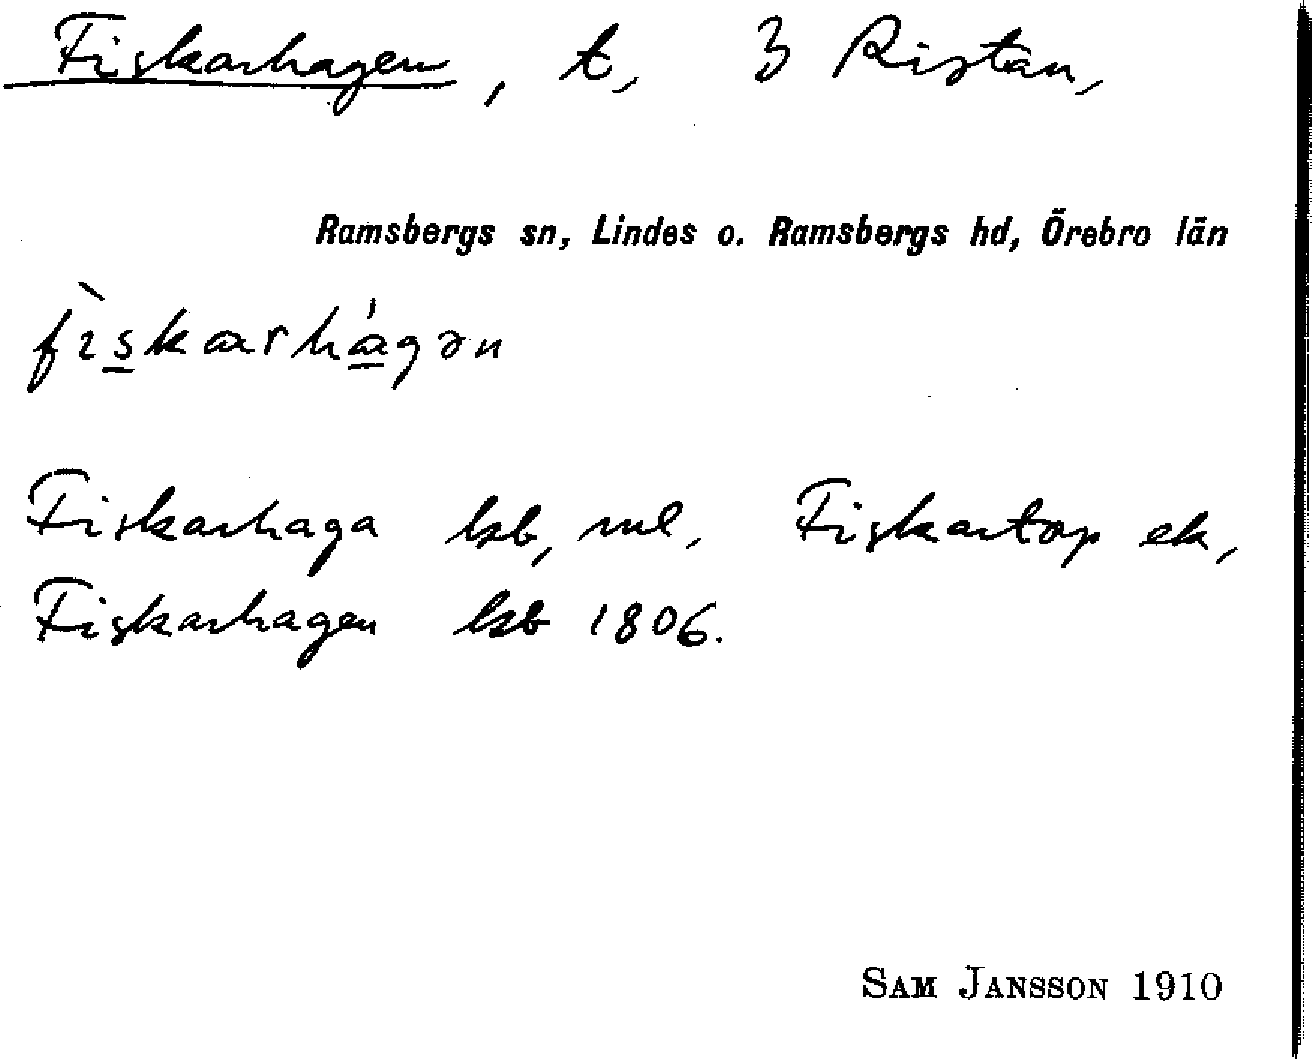 Fiskarhagen, t, 3 Ristan,
Ramsbergs sn, Lindes o. Ramsbergs hd, Örebro län
fìskarhágən
Fiskarhaga ksb, ml, Fiskartorp ek,
Fiskarhagen ksb 1806.
SAM JANSSON 1910